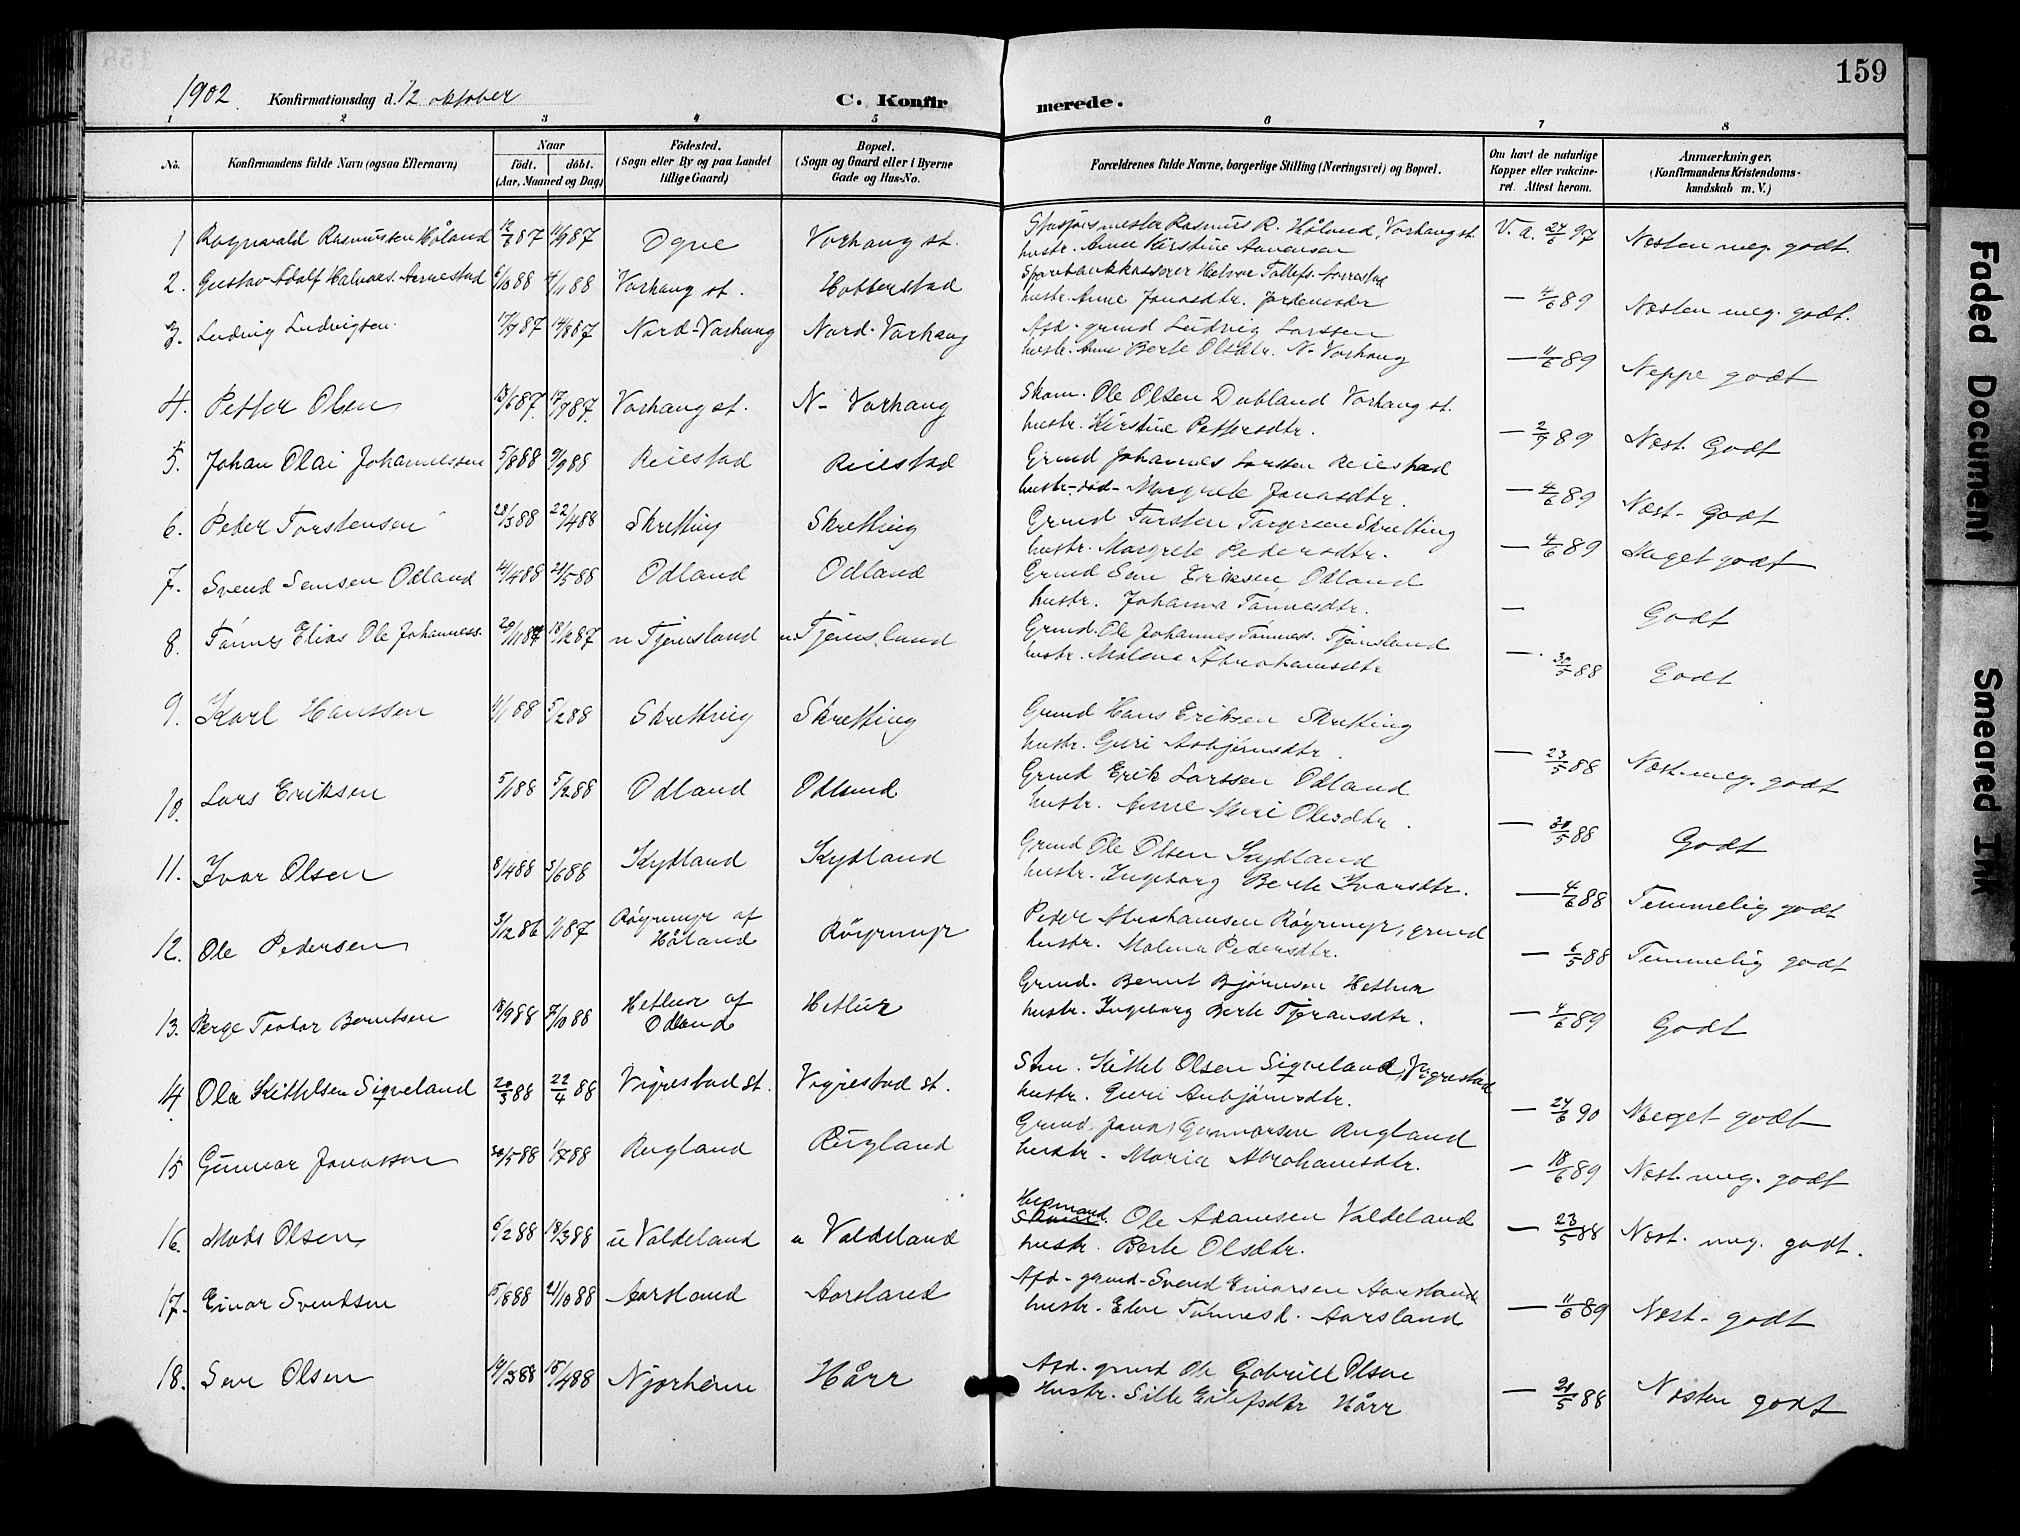 159
1902 Konfirmationsdag d. 12 oktober C. Konfirmerede.
1 2 3 4 5 6 7 8
No.
Konfirmandens fulde Navn (ogsaa Efternavn)
Naar
födt. döbt.
(Aar, Maaned og Dag)
Födested.
(Sogn eller By og paa Landet
tillige Gaard)
Bopæl.
(Sogn og Gaard eller i Byerne
Gade og Hus-No.
Forældrenes fulde Navne, borgerlige Stilling (Næringsvei) og Bopæl.
Om havt de naturlige
Kopper eller vakcine-
ret. Attest herom.
Anmærkninger.
(Konfirmandens Kristendoms-
kundskab m. V.)
1 Ragnvald Rasmussen Håland 87 11/9 87 Ogne Varhaug st. Rasmus R. Håland, Varhaug st. V. a. 24/6 97 Næsten meg. godt.
hustr. Anne Kirstine
2. Gustav Adolf Halvors. Aarrestad 6/10 88 4/11 88 Varhaug st. Hobberstad Sparebankkasserer Halvor Tollefs. Aarrestad
hustr. Anne Jonasdtr. — 4/6 89 Næsten meg. godt.
3. Ludvig Ludvigsen 17/7 87 14/8 87 Nord-Varhaug Nord-Varhaug Afd. grmd Ludvig Larssen
hustr. Anne Berte Olsdtr. N- Varhaug — 11/6 89 Neppe godt
4. Petter Olsen 87 17/7 87. Varhaug st. N- Varhaug Skom. Ole Olsen Dubland Varhaug st.
hustr. Kirstine Pettersdtr. — 2/7 89 Næst. Godt
5. Johan Olai Johannessen 5/8 88 9/9 88 Reiestad Reiestad Grmd Johannes Larssen Reiestad
hustr. død - Margrete Jonasdtr. — 4/6 89 Næst. Godt
6. Peder Torstensen 28/3 88 22/4 88 Skretting Skretting Grmd Torsten Torgersen Skretting
hustr. Margrete Pedersdtr. — 4/6 89 Meget godt
7. Svend Semsen Odland 14/4 88 21/5 88 Odland Odland Grmd Sem Eriksen Odland
hustr. Johanna Tønnesdtr. — Godt
8. Tønnes Elias Ole Johanness. 29/11 87 18/12 87 n Tjemsland n. Tjemsland Grmd. Ole Johannes Tønness. Tjemsland
hustr. Malena Abrahamsdtr — 30/5 88 Godt
9. Karl Hanssen 11/1 88 5/2 88 Skretting Skretting Grmd Hans Eriksen Skretting
hustr. Guri Asbjørnsdtr. — 23/5 88 Næst. meg. godt
10. Lars Eriksen 5/1 88 5/2 88 Odland Odland Grmd Erik Larssen Odland
hustr. Anne Mari Olesdtr. — 30/5 88 Godt
11. Ivar Olsen 8/4 88 3/6 88 Kydland Kydland Grmd Ole Olsen Kydland
hustr. Ingeborg Berte Ivarsdtr. — 4/6 88 Temmelig godt
12. Ole Pedersen 3/12 86 1/1 87 Røyrmyr af
Håland Røyrmyr Peder Abrahamsen Røyrmyr, grmd
hustr. Malena Pedersdtr. — 6/5 88 Temmelig godt
13. Børge Teodor Berntsen 18/9 88 7/10 88 Hetlur af
Odland Hetlur Grmd. Bernt Bjørnsen Hetlur
hustr. Ingeborg Berte Tjøransdtr. — 4/6 89 Godt
14. Ola Kittelsen Sigveland 20/3 88 22/4 88 Vigrestad st. Vigrestad st. Kittel Olsen Sigveland, Vigrestad
hustr. Guri Anbjørnsdtr. — 24/6 90 Meget godt
15 Gunnar Jonassen 30/5 88 1/7 88 Rugland Rugland Grmd. Jonas Gunnarsen Rugland
hustr. Maria Abrahamsdtr. — 18/6 89 Næst. meg. godt
16. Mads Olsen 6/2 88 18/3 88 u Valdeland u Valdeland Husmand. Ole Adamsen Valdeland
hustr. Berte Olsdtr. — 23/5 88 Næst. meg. godt.
17. Einar Svendsen 88 21/10 88 Aarsland Aarsland Afd- grmd- Svend Einarsen Aarsland
hustr. Elen Tønnesd. Aarsland — 11/6 89 Næst. godt
18. Sem Olsen 19/3 88 15/4 88 Njærheim Hårr Afd- grmd Ole Gabriel Olsen
Hustr. Sille Eilefsdtr Hårr — 20/5 88 Næsten godt
Faded Document Smeared Ink